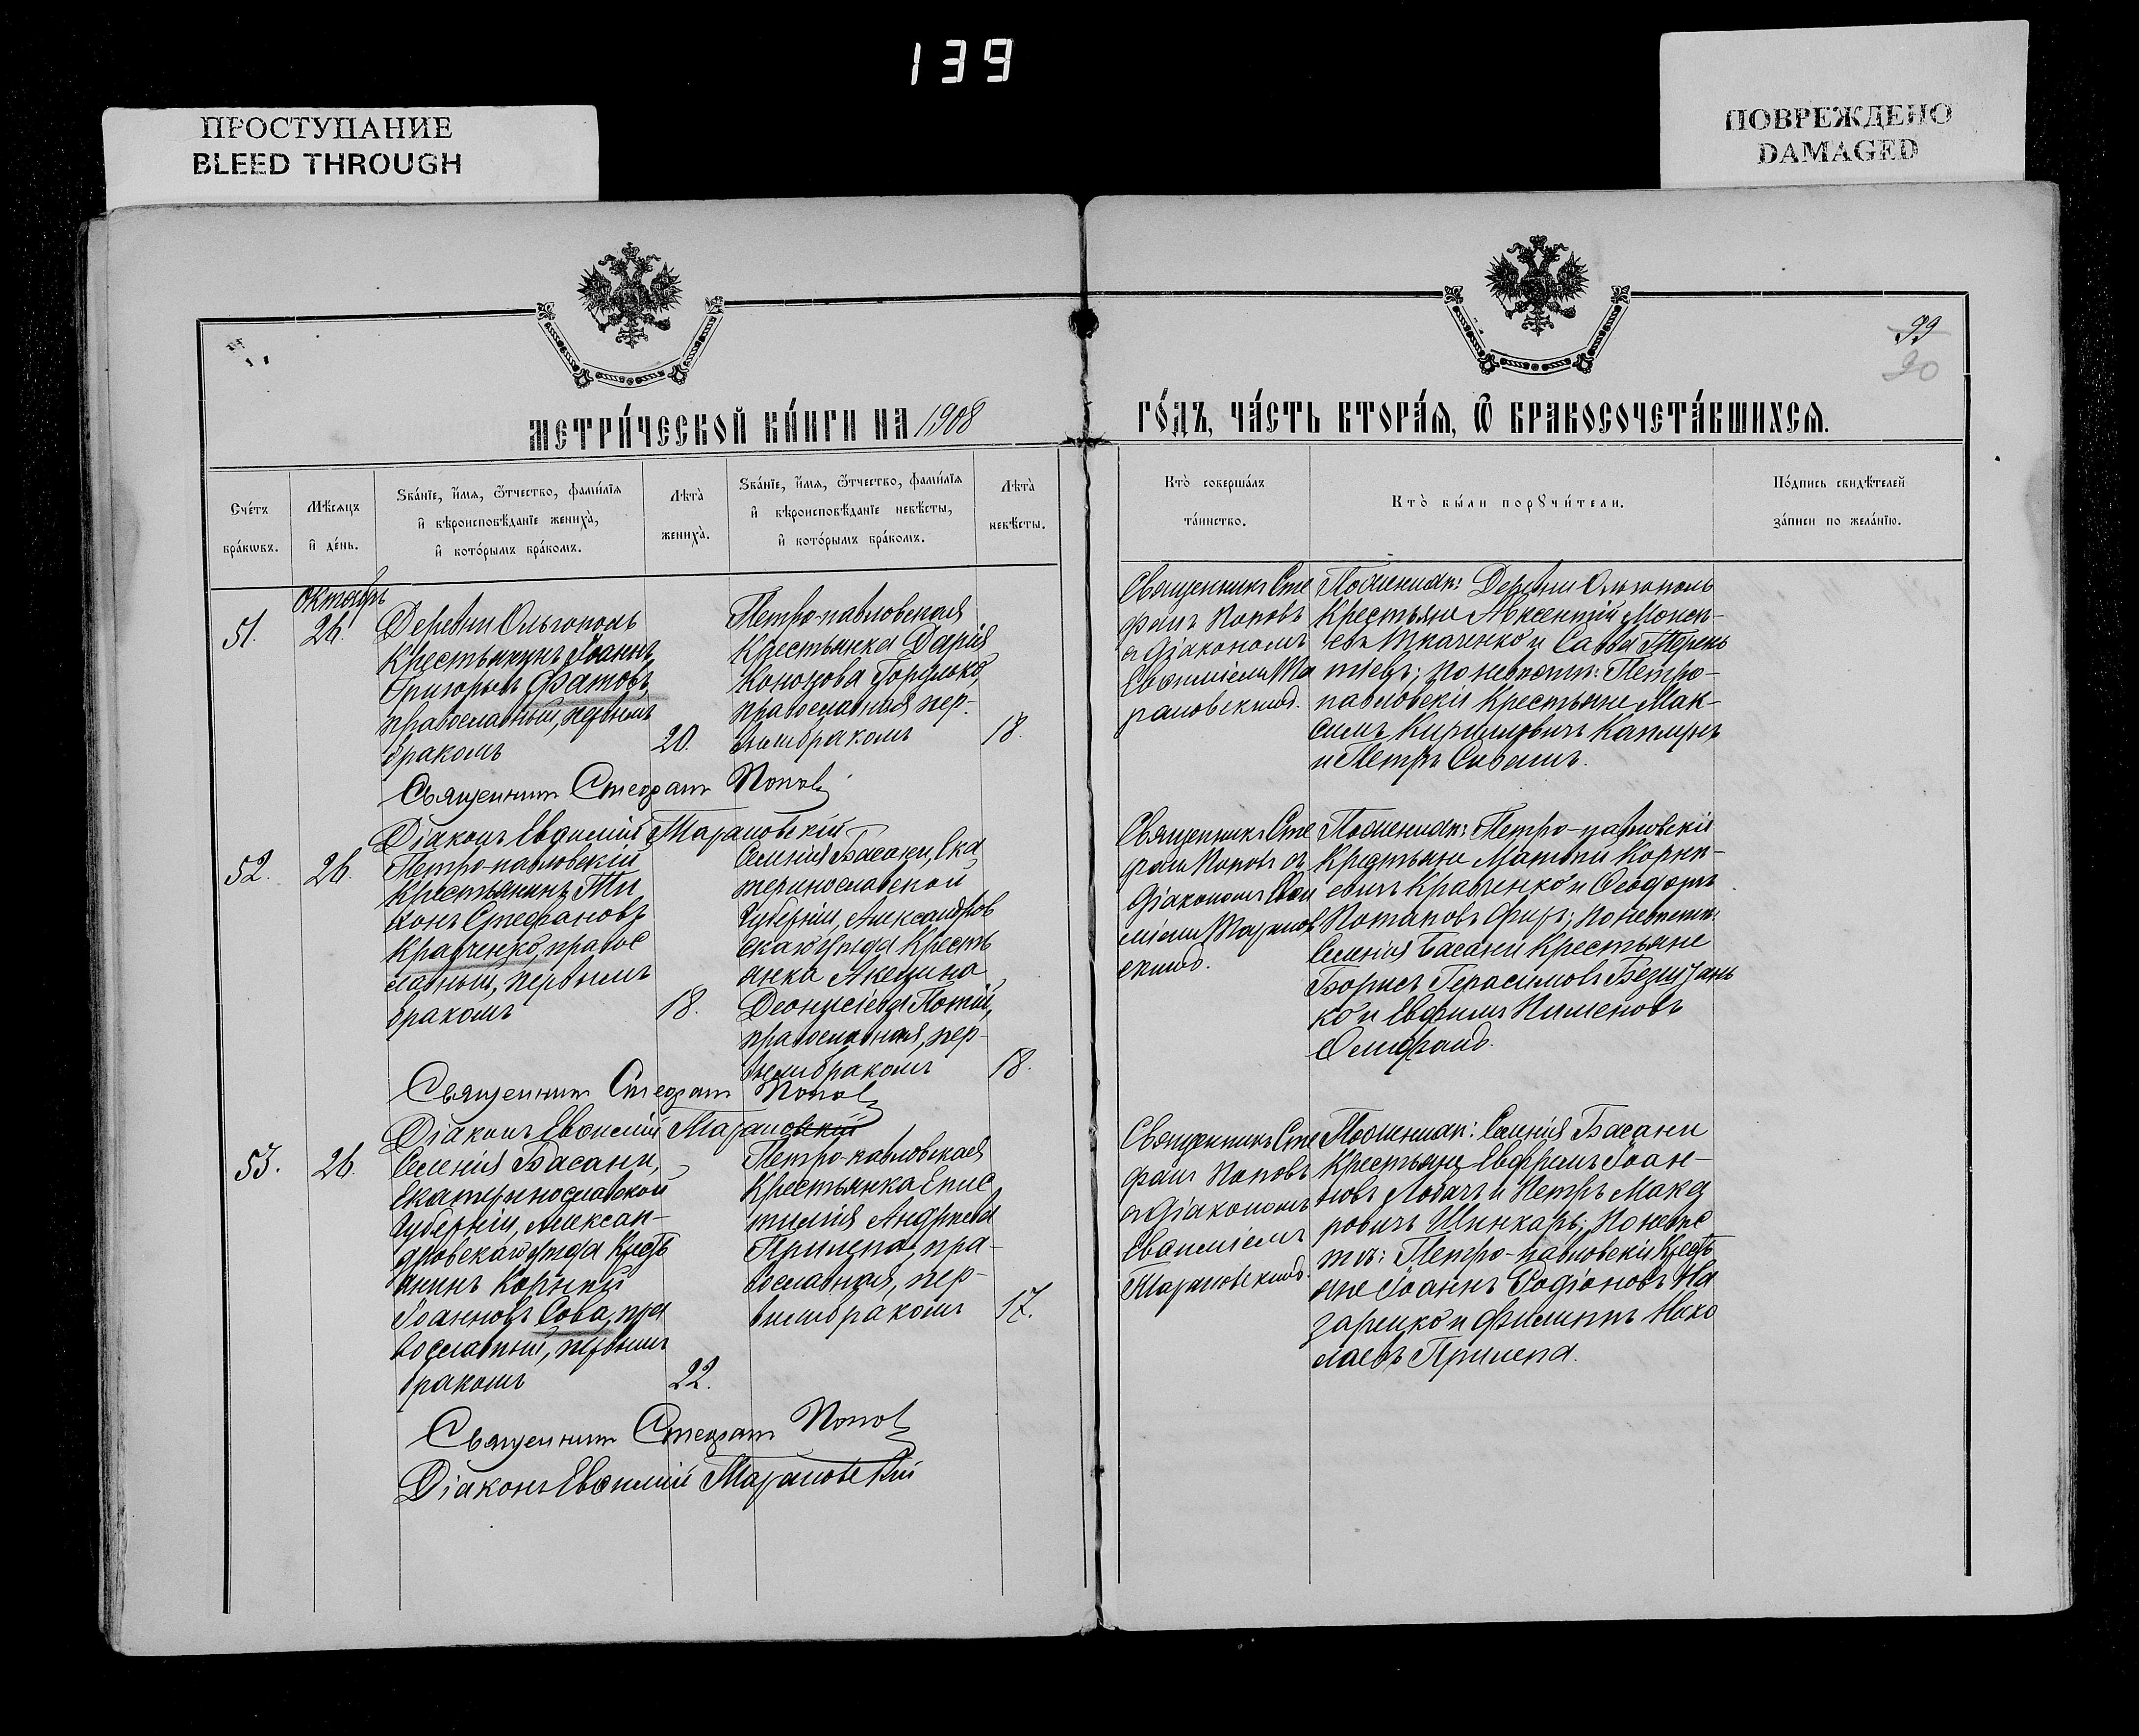 139
ПРОСТУПАНИЕ
BLEED THROUGH
ПОВРЕЖДЕНО
DAMAGED
99
90
МЕТРИ́ЧЕСКОЙ КНИ́ГИ НА 1908
ГО́ДЪ, ЧА́СТЬ ВТОРА́Ѧ, Ѿ БРАКОСОЧЕТА́ВШИХСѦ.
Сче́тъ
бра́кѡвъ.
Мѣ́сѧцъ
и҆ де́нь.
Ѕва́нїе, и҆́мѧ, ѻ҆́тчество, фами́лїѧ
и҆ вѣроисповѣ́данїе жениха̀,
и҆ кото́рымъ бра́комъ.
Лѣта̀
жениха̀.
Ѕва́нїе, и҆́мѧ, ѻ҆́тчество, фами́лїѧ
и҆ вѣроисповѣ́данїе невѣ́сты,
и҆ кото́рымъ бра́комъ.
Лѣта̀
невѣ́сты.
Кто̀ соверша́лъ
та́инство.
Кто̀ бы́ли порꙋчи́тели.
По́дпись свидѣ́телей
за́писи по жела́нїю.
Октябрь
51.
26.
Деревни Ольгополь
Крестьянинъ Іоаннъ
Григорьевъ Фатовъ,
православный, первымъ
бракомъ
20.
Петро-павловская
Крестьянка Дарія
Кононова Горилко,
православная, пер-
вымъ бракомъ
18.
Священникъ Сте
фанъ Поповъ
съ Діакономъ
Евѳиміемъ Та
рановскимъ.
По женихѣ: Деревни Ольгополь
Крестьяне Авксентій Моисе-
евъ Ткаченко и Савва Терень
тіевъ; по невѣстѣ: Петро-
павловскіе Крестьяне Мак-
симъ Кирилловичъ
и Петръ
Священникъ Стефанъ Поповъ
Діаконъ Евѳимій Тарановскій
52.
26.
Петро-павловскій
Крестьянинъ Ти
хонъ Стефановъ
Кравченко, правос
лавный, первымъ
бракомъ
18.
Селенія Басани, Ека
теринославской
Губерніи, Александров
скаго уѣзда Кресть
янка Акелина
Деонисіева
православная, пер-
вымъ бракомъ
18.
Священникъ Сте
фанъ Поповъ съ
Діакономъ Евѳи
міемъ Таранов
скимъ.
По женихѣ: Петро-павловскіе
Крестьяне Матвѣй Корне-
евичъ Кравченко и Ѳеодоръ
Потаповъ по невѣстѣ:
Селенія Басани Крестьяне
Борисъ Герасимовъ
ко и Евфимъ Пименовъ
Священникъ Стефанъ Поповъ
Діаконъ Евѳимій Тарановскій
53.
26.
Селенія Басани,
Екатеринославской
Губерніи, Алексан-
дровскаго уѣзда Кресть
янинъ Корнилій
Іоанновъ Сова, пра
вославный, первымъ
бракомъ
22.
Петро-павловская
Крестьянка Епис
тимія Андреева
Прилепа, пра-
вославная, пер-
вымъ бракомъ
17.
Священникъ Сте
фанъ Поповъ
съ Діакономъ
Евѳиміемъ
Тарановскимъ.
По женихѣ: Селенія Басани
Крестьяне Ефремъ Іоан-
новъ Лобачъ и Петръ Маке
ровичъ Шинкарь; по невѣс
тѣ: Петро-павловскіе Кресть
яне Іоаннъ Родіоновъ На
заренко и Филиппъ Нико
лаевъ Прилепа.
Священникъ Стефанъ Поповъ
Діаконъ Евѳимій Тарановскій